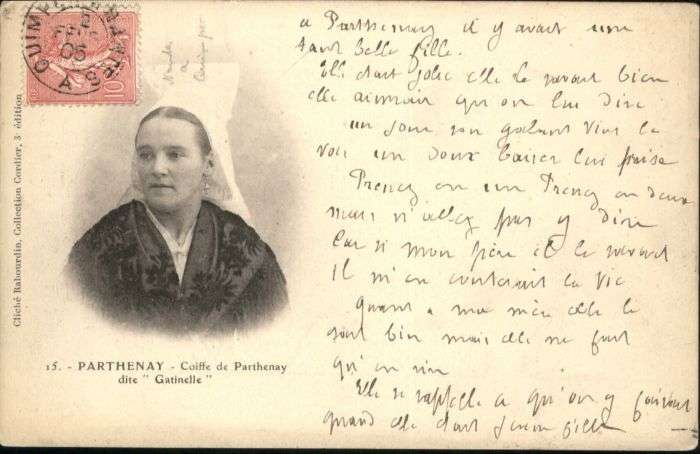 GUIMPS
CHARENTE
2
FEVR
05
10
Cliché Rabourdin, Collection Cordier, 3e édition
15. - PARTHENAY - Coiffe de Parthenay
dite " Gatinelle "
a Parthenay il y avait une
tant belle fille.
Elle etait jolie elle le savait bien
elle aimait qu on lui dise
un jour son galant vint la
voir un doux baiser lui
Prenez en un Prenez en deux
mais n'allez pas y dire
Car si mon père il le savait
Il m'en couterait la vie
Quant a ma mère elle le
sait bien mais elle ne fait
qu'en rire
Elle se rappelle a qu'on y faisait
quand elle etait jeune fille